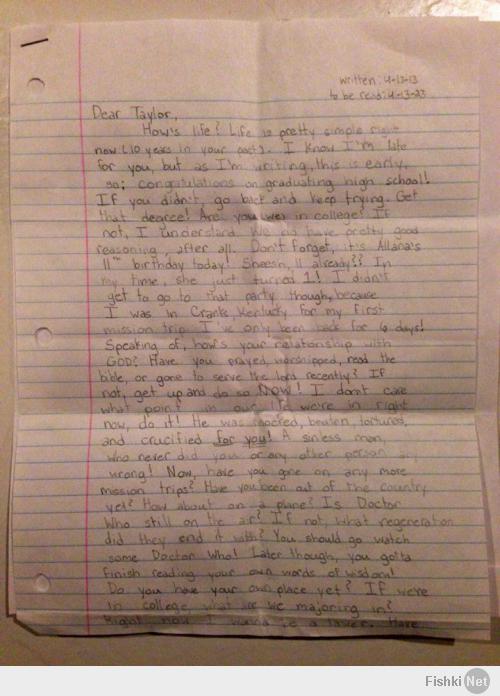 written: 4-13-13
to be read: 4-13-23
Dear Taylor,
How's life? Life is pretty simple right
now (10 years in your past). I know I'm late
for you, but as I'm writing, this is early,
so; congratulations on graduating high school!
If you didn't, go back and keep trying. Get
that degree! Are you (we) in college? If
not, I understand. We do have pretty good
reasoning, after all. Don't forget, it's Allana's
11th birthday today! Sheesh, 11 already?? In
my time, she just turned 1! I didn't
get to go to that party though, because
I was in Cranks, Kentucky for my first
mission trip. I've only been back for 6 days!
Speaking of, how's your relationship with
GOD? Have you prayed, worshipped, read the
bible, or gone to serve the lord recently? If
not, get up and do so NOW! I don't care
what point in our life we're in right
now, do it! He was mocked, beaten, tortured,
and crucified for you! A sinless man,
who never did you or any other person any
wrong! Now, have you gone on any more
mission trips? Have you been out of the country
yet? How about on a plane? Is Doctor
Who still on the air? If not, what regeneration
did they end it with? You should go watch
some Doctor Who! Later though, you gotta
finish reading your own words of wisdom!
Do you have your own place yet? If we're
in college, what are we majoring in?
Right now I wanna be a lawer. Have
Fishki.Net